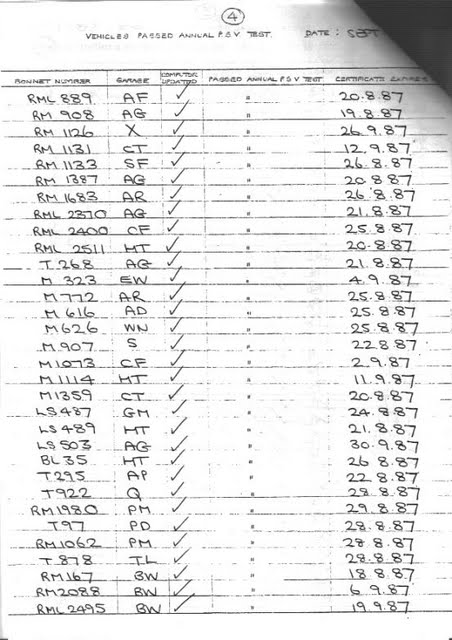 4
VEHICLES PASSED ANNUAL P.S.V TEST. DATE: SEPT
BONNET NUMBER GARAGE COMPUTER UPDATED PASSED ANNUAL P.S.V TEST CERTIFICATE EXPIRES
RML 889 AF ✓ " 20.8.87
RM 908 AG ✓ " 19.8.87
RM 1126 X ✓ " 26.9.87
RM 1131 CT ✓ " 12.9.87
RM 1133 SF ✓ " 26.8.87
RM 1387 AG ✓ " 20.8.87
RM 1683 AR ✓ " 26.8.87
RML 2370 AG ✓ " 21.8.87
RML 2400 CF ✓ " 25.8.87
RML 2511 HT ✓ " 20.8.87
T 268 AG ✓ " 21.8.87
M 323 EW ✓ " 4.9.87
M 772 AR ✓ " 25.8.87
M 616 AD ✓ " 25.8.87
M 626 WN ✓ " 25.8.87
M 907 S ✓ " 22.8.87
M 1073 CF ✓ " 2.9.87
M 1114 HT ✓ " 11.9.87
M 1359 CT ✓ " 20.8.87
LS 437 GM ✓ " 24.8.87
LS 489 HT ✓ " 21.8.87
LS 503 AG ✓ " 30.9.87
BL 35 HT ✓ " 26.8.87
T 295 AP ✓ " 22.8.87
T 922 Q ✓ " 28.8.87
RM 1980 PM ✓ " 29.8.87
T 97 PD ✓ " 28.8.87
RM 1062 PM ✓ " 28.8.87
T 878 TL ✓ " 28.8.87
RM 167 BW ✓ " 18.8.87
RM 2088 BW ✓ " 6.9.87
RML 2495 BW ✓ " 19.9.87